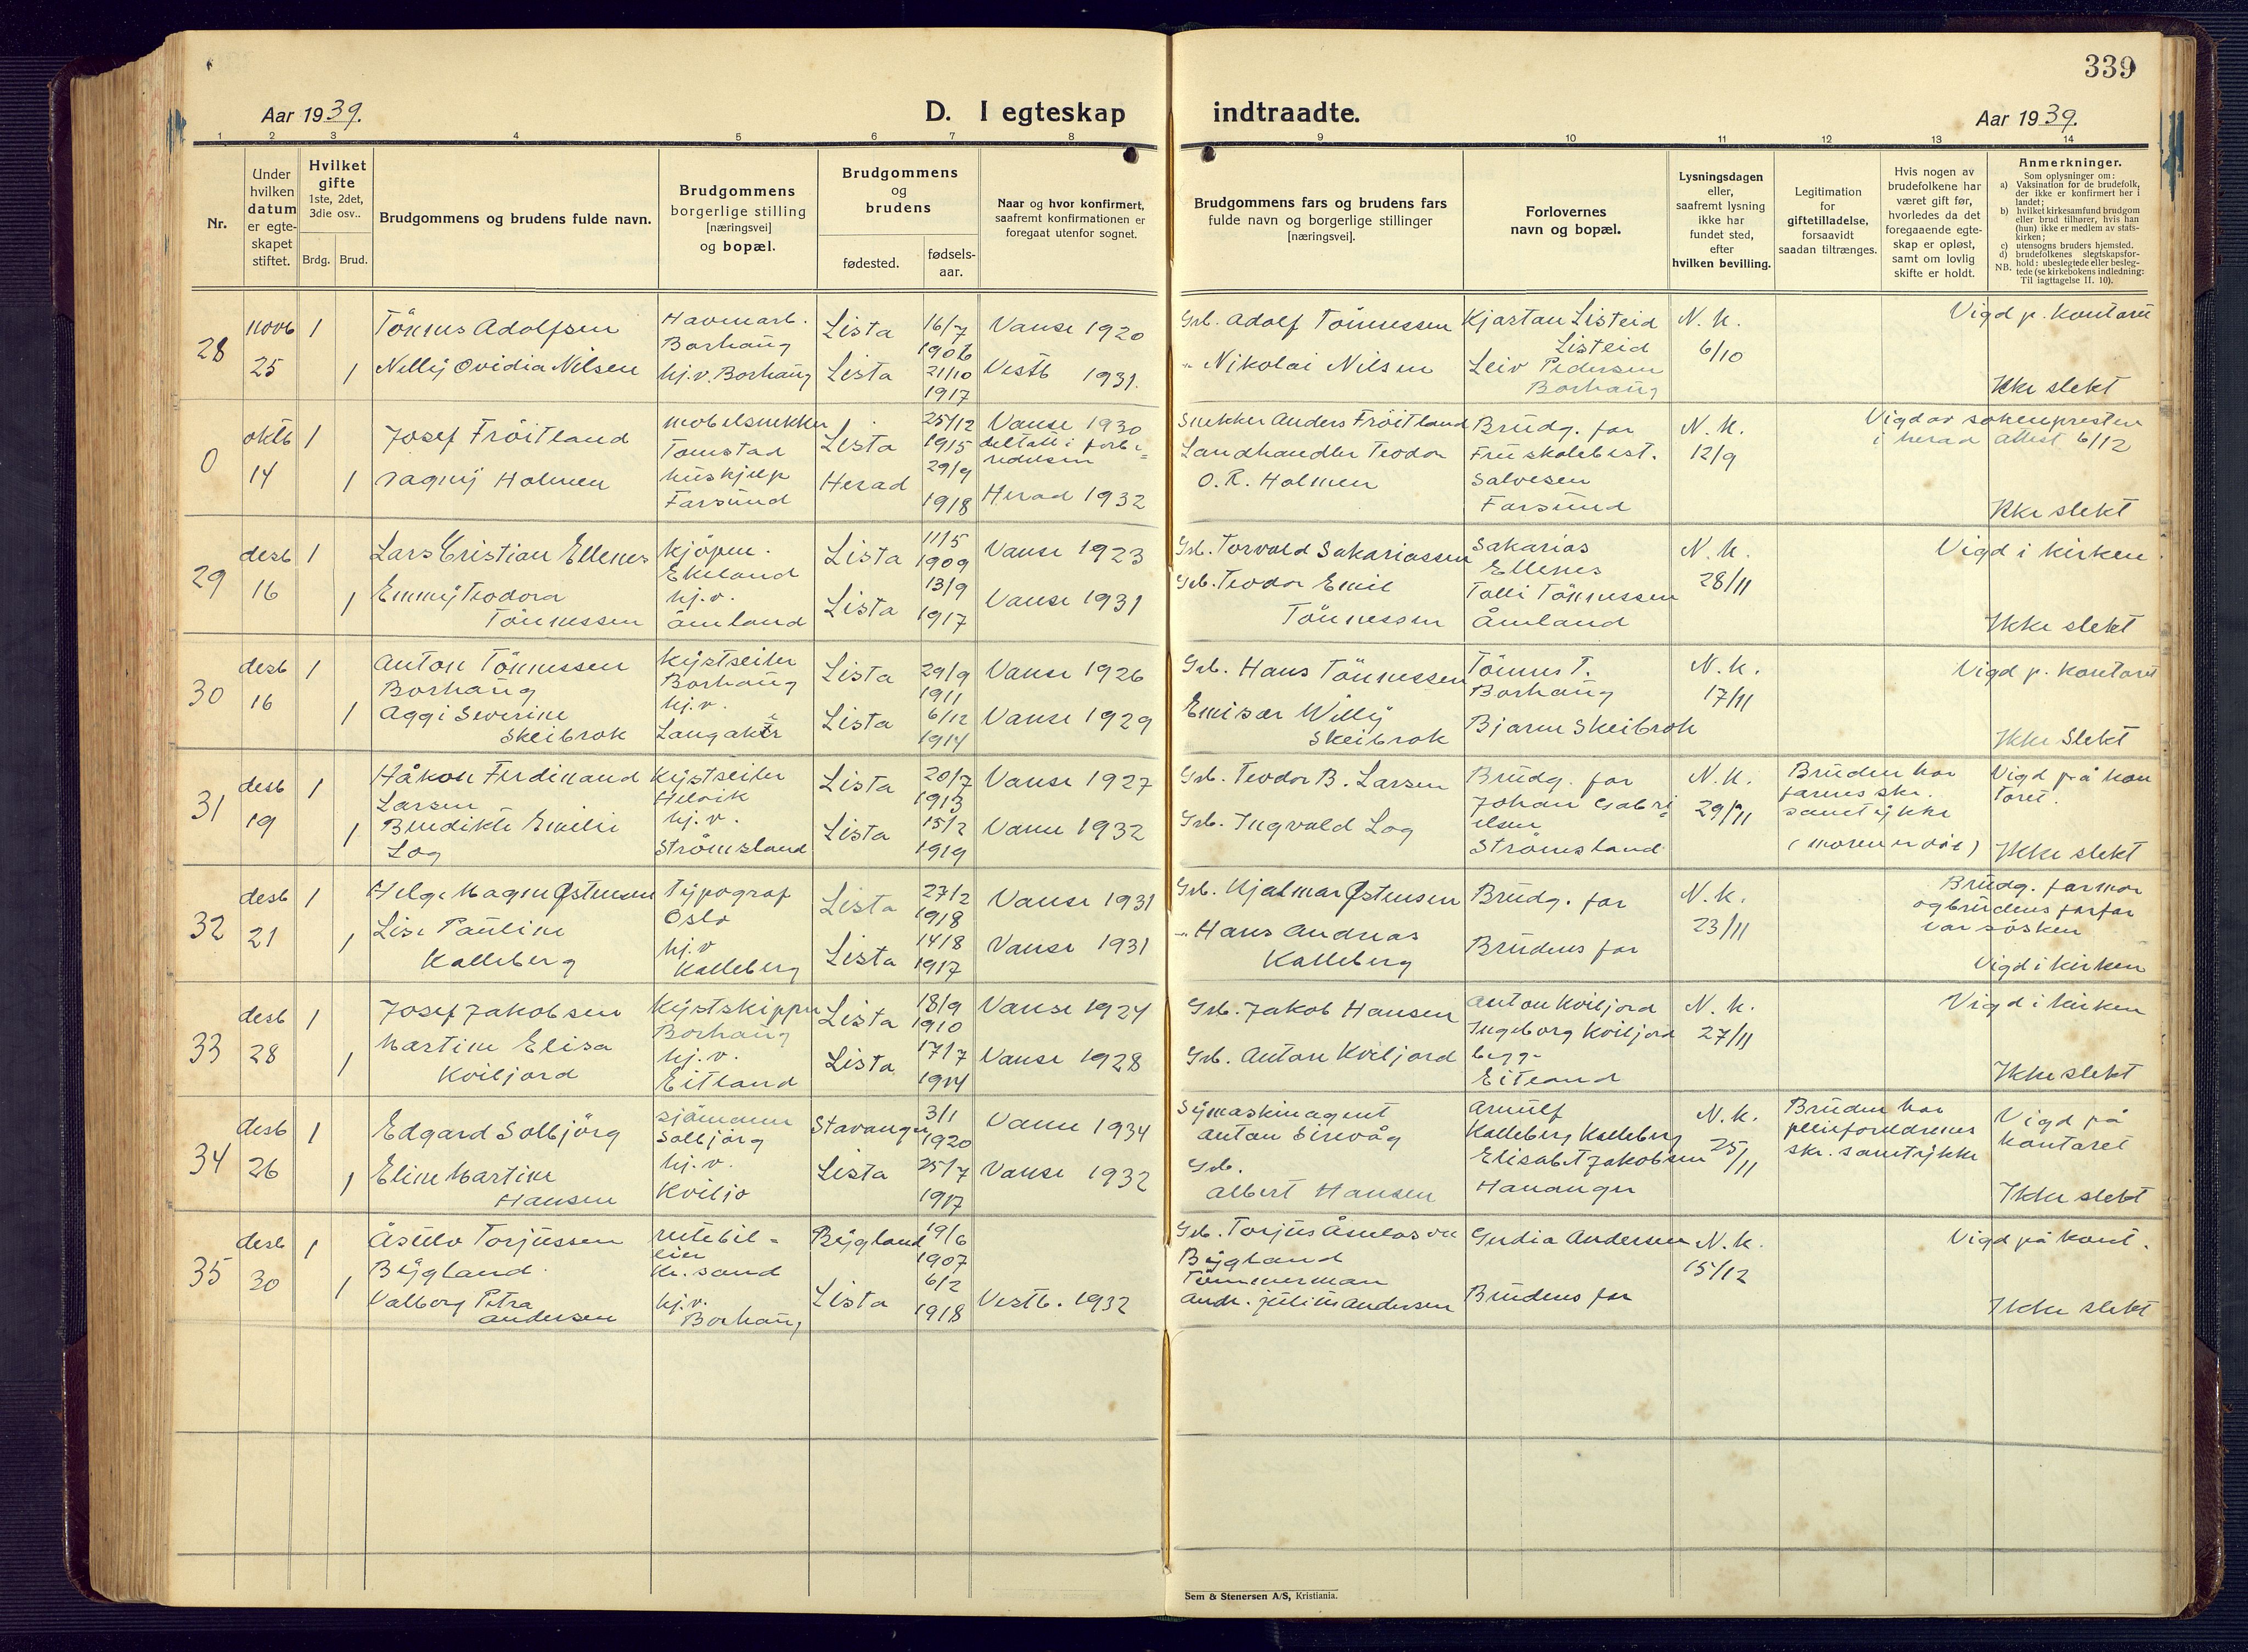 339
Aar 1939.
D. I egteskap
indtraadte.
Aar 1939.
1 2 3 4 5 6 7 8 9 10 11 12 13 14
Nr.
Under
hvilken
datum
er egte-
skapet
stiftet.
Hvilket
gifte
1ste, 2det,
3die osv..
Brdg. Brud.
Brudgommens og brudens fulde navn.
Brudgommens
borgerlige stilling
[næringsvei]
og bopæl.
Brudgommens
og
brudens
fødested.
fødsels-
aar.
Naar og hvor konfirmert,
saafremt konfirmationen er
foregaat utenfor sognet.
Brudgommens fars og brudens fars
fulde navn og borgerlige stillinger
[næringsvei].
Forlovernes
navn og bopæl.
Lysningsdagen
eller,
saafremt lysning
ikke har
fundet sted,
efter
hvilken bevilling.
Legitimation
for
giftetilladelse,
forsaavidt
saadan tiltrænges.
Hvis nogen av
brudefolkene har
været gift før,
hvorledes da det
foregaaende egte-
skap er opløst,
samt om lovlig
skifte er holdt.
Anmerkninger.
Som oplysninger om:
a) Vaksination for de brudefolk,
der ikke er konfirmert her i
landet;
b) hvilket kirkesamfund brudgom
eller brud tilhører, hvis han
(hun) ikke er medlem av stats-
kirken;
c) utensogns bruders hjemsted.
d) brudefolkenes slegtskapsfor-
hold: ubeslegtede eller besleg-
NB. tede (se kirkebokens indledning:
Til iagttagelse II. 10).
28
novb
25
1
1
Tönnes Adolfsen
Nelly Ovidia Nilsen
Havnarb.
Borhaug
hj.v. Borhaug
Lista
Lista
16/7
1906
21/10
1917
Vanse 1920
Vestb 1931.
Grb. Adolf Tönnessen
" Nikolai Nilsen
Kjartan Listeid
Listeid
Leiv Pedersen
Borhaug
N. K.
6/10
Vigd p. kontoret
Ikke slekt
0
oktb
14
1
1
Josef Fröitland
Dagny Holmen
møbelsnekker
Tomstad
hushjelp
Farsund
Lista
Herad
25/12
1915
29/9
1918
Vanse 1930
deltatt i forbe=
redelsen
Herad 1932
Snekker Anders Fröitland
Landhandler Teodor
O. R. Holmen
Brudg. far
Fru skolebest.
Salvesen
Farsund
N. K.
12/9
Vigd av sokenpresten
i herad Attest 6/12
Ikke slekt
29
desb
16
1
1
Lars Cristian Ellenes
Emmy Teodora
Tönnessen
kjöpm.
Ekeland
hj.v.
Åmland
Lista
Lista
11/5
1909
13/9
1917
Vanse 1923
Vanse 1931
Grb. Torvald Sakariassen
Grb. Teodor Emil
Tönnessen
Sakarias
Ellenes
Talli Tönnessen
Åmland
N. K.
28/11
Vigd i kirken
Ikke slekt
30
desb
16
1
1
Anton Tönnessen
Borhaug
Aggi Severine
Skeibrok
kystseiler
Borhaug
hj.v.
Langaker
Lista
Lista
29/9
1911
6/12
1914
Vanse 1926
Vanse 1929
Grb. Hans Tönnessen
Emisær Willy
Skeibrok
Tönnes T.
Borhaug
Bjarne Skeibrok
N. K.
17/11
Vigd p. kontoret
Ikke Slekt
31
desb
19
1
1
Håkon Ferdinand
Larsen
Benedikte Emelie
Log
Kystseiler
Helvik
hj.v.
Strømsland
Lista
Lista
20/7
1913
15/2
1919
Vanse 1927
Vanse 1932
Grb. Teodor B. Larsen
Grb. Ingvald Log
Brudg. far
Johan Gabri=
elsen
Strömsland
N. K.
29/11
Bruden har
farens skr.
samtykke
(moren er död)
Vigd på kon
toret.
Ikke slekt
32
desb
21
1
1
Helge Magne Østensen
Lise Pauline
Kalleberg
Typograf
Oslo
hj.v
Kalleberg
Lista
Lista
27/2
1918
14/8
1917
Vanse 1931
Vanse 1931
Grb. Hjalmar Østensen
" Hans Andreas
Kalleberg
Brudg. far
Brudens far
N. K.
23/11
Brudg. farmor
og brudens farfar
var søsken
Vigd i kirken
33
desb
28
1
1
Josef Jakobsen
Martine Elisa
Kviljord
Kystskipper
Borhaug
hj.v.
Eitland
Lista
Lista
18/9
1910
17/7
1914
Vanse 1924
Vanse 1928
Grb. Jakob Hansen
Grb. Anton Kviljord
Anton Kviljord
Ingeborg Kviljord
begge
Eitland
N. K.
27/11
Vigd i kirken
Ikke slekt
34
desb
26
1
1
Edgard Solbjörg
Eline Martine
Hansen
sjömann
Solbjörg
hj.v.
Kviljo
Stavanger
Lista
3/1
1920
25/7
1917
Vanse 1934
Vanse 1932
Symaskinagent
Anton Sirevåg
Grb.
Albert Hansen
Arnulf
Kalleberg Kalleberg
Elisabet Jakobsen
Hananger
N. K.
25/11
Bruden har
pleieforeldrenes
skr. samtykke
Vigd på
kontoret
Ikke slekt
35
desb
30
1
1
Åsulv Torjussen
Bygland.
Valborg Petra
Andersen
rutebil=
eier
Kr. sand
hj.v.
Borhaug
Bygland
Lista
19/6
1907
6/2
1918
Vestb. 1932
Grb. Torjus Åsulvson
Bygland
Tömmerman
Andr. Julius Andersen
Gudia Andersen
Brudens far
N. K.
15/12
Vigd på kont.
Ikke slekt
Sem & Stenersen A/S, Kristiania.